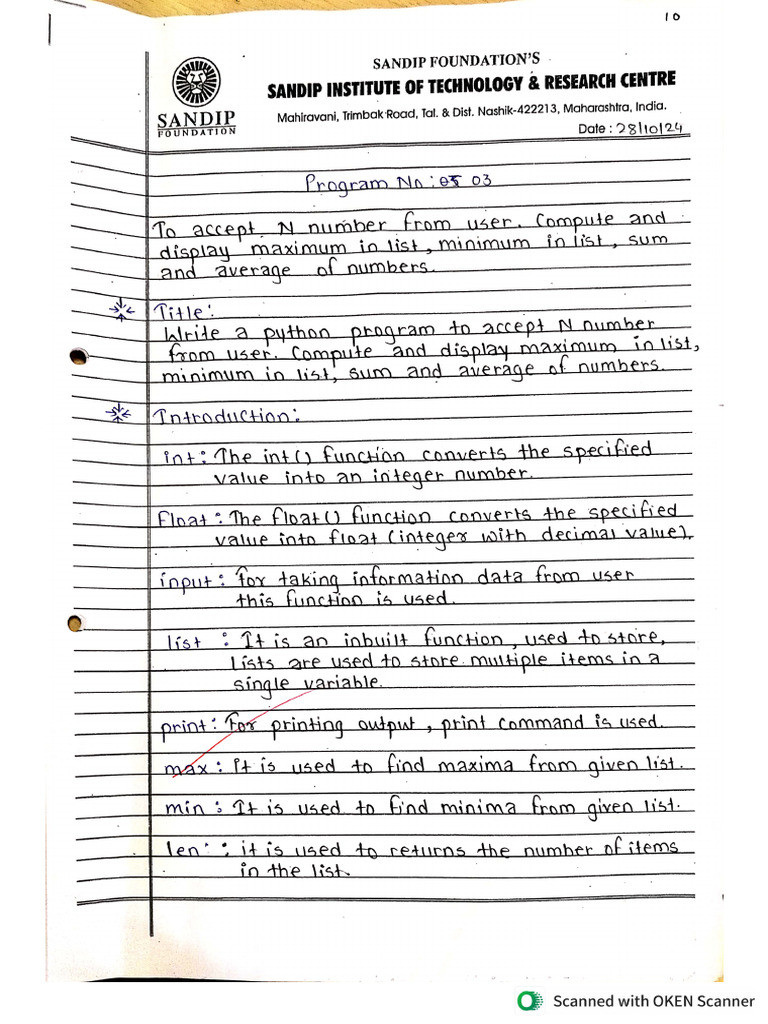 10
SANDIP FOUNDATION'S
SANDIP INSTITUTE OF TECHNOLOGY & RESEARCH CENTRE
SANDIP
FOUNDATION
Mahiravani, Trimbak Road, Tal. & Dist. Nashik-422213, Maharashtra, India.
Date : 28/10/24
Program No : 03
To accept N number from user. Compute and
display maximum in list, minimum in list, sum
and average of numbers.
Title:
Write a python program to accept N number
from user. Compute and display maximum in list,
minimum in list, sum and average of numbers.
Introduction:
int : The int() function converts the specified
value into an integer number.
Float : The float() function converts the specified
value into float (integer with decimal value).
input : For taking information data from user
this function is used.
list : It is an inbuilt function, used to store,
lists are used to store multiple items in a
single variable.
print : For printing output, print command is used.
max : It is used to find maxima from given list.
min : It is used to find minima from given list.
len : it is used to returns the number of items
in the list.
Scanned with OKEN Scanner